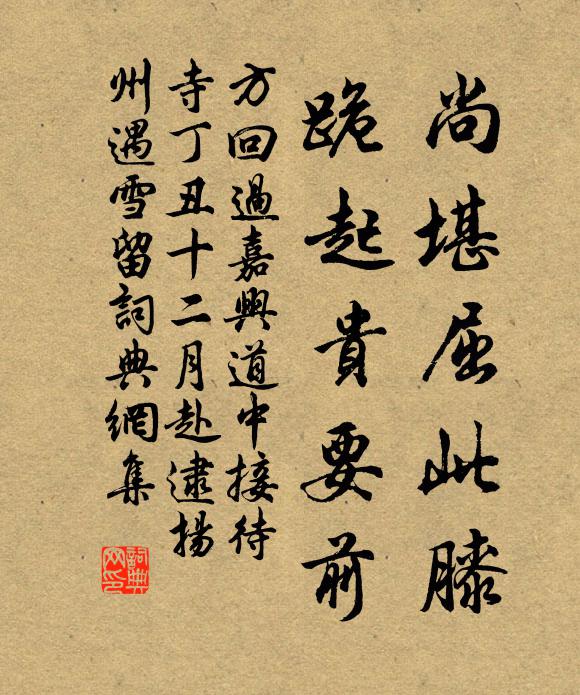 尚堪屈此膝
跪起貴要前
方回過嘉興道中接待
寺丁丑十二月赴逮揚
州遇雪留詞典網集
詞典網印